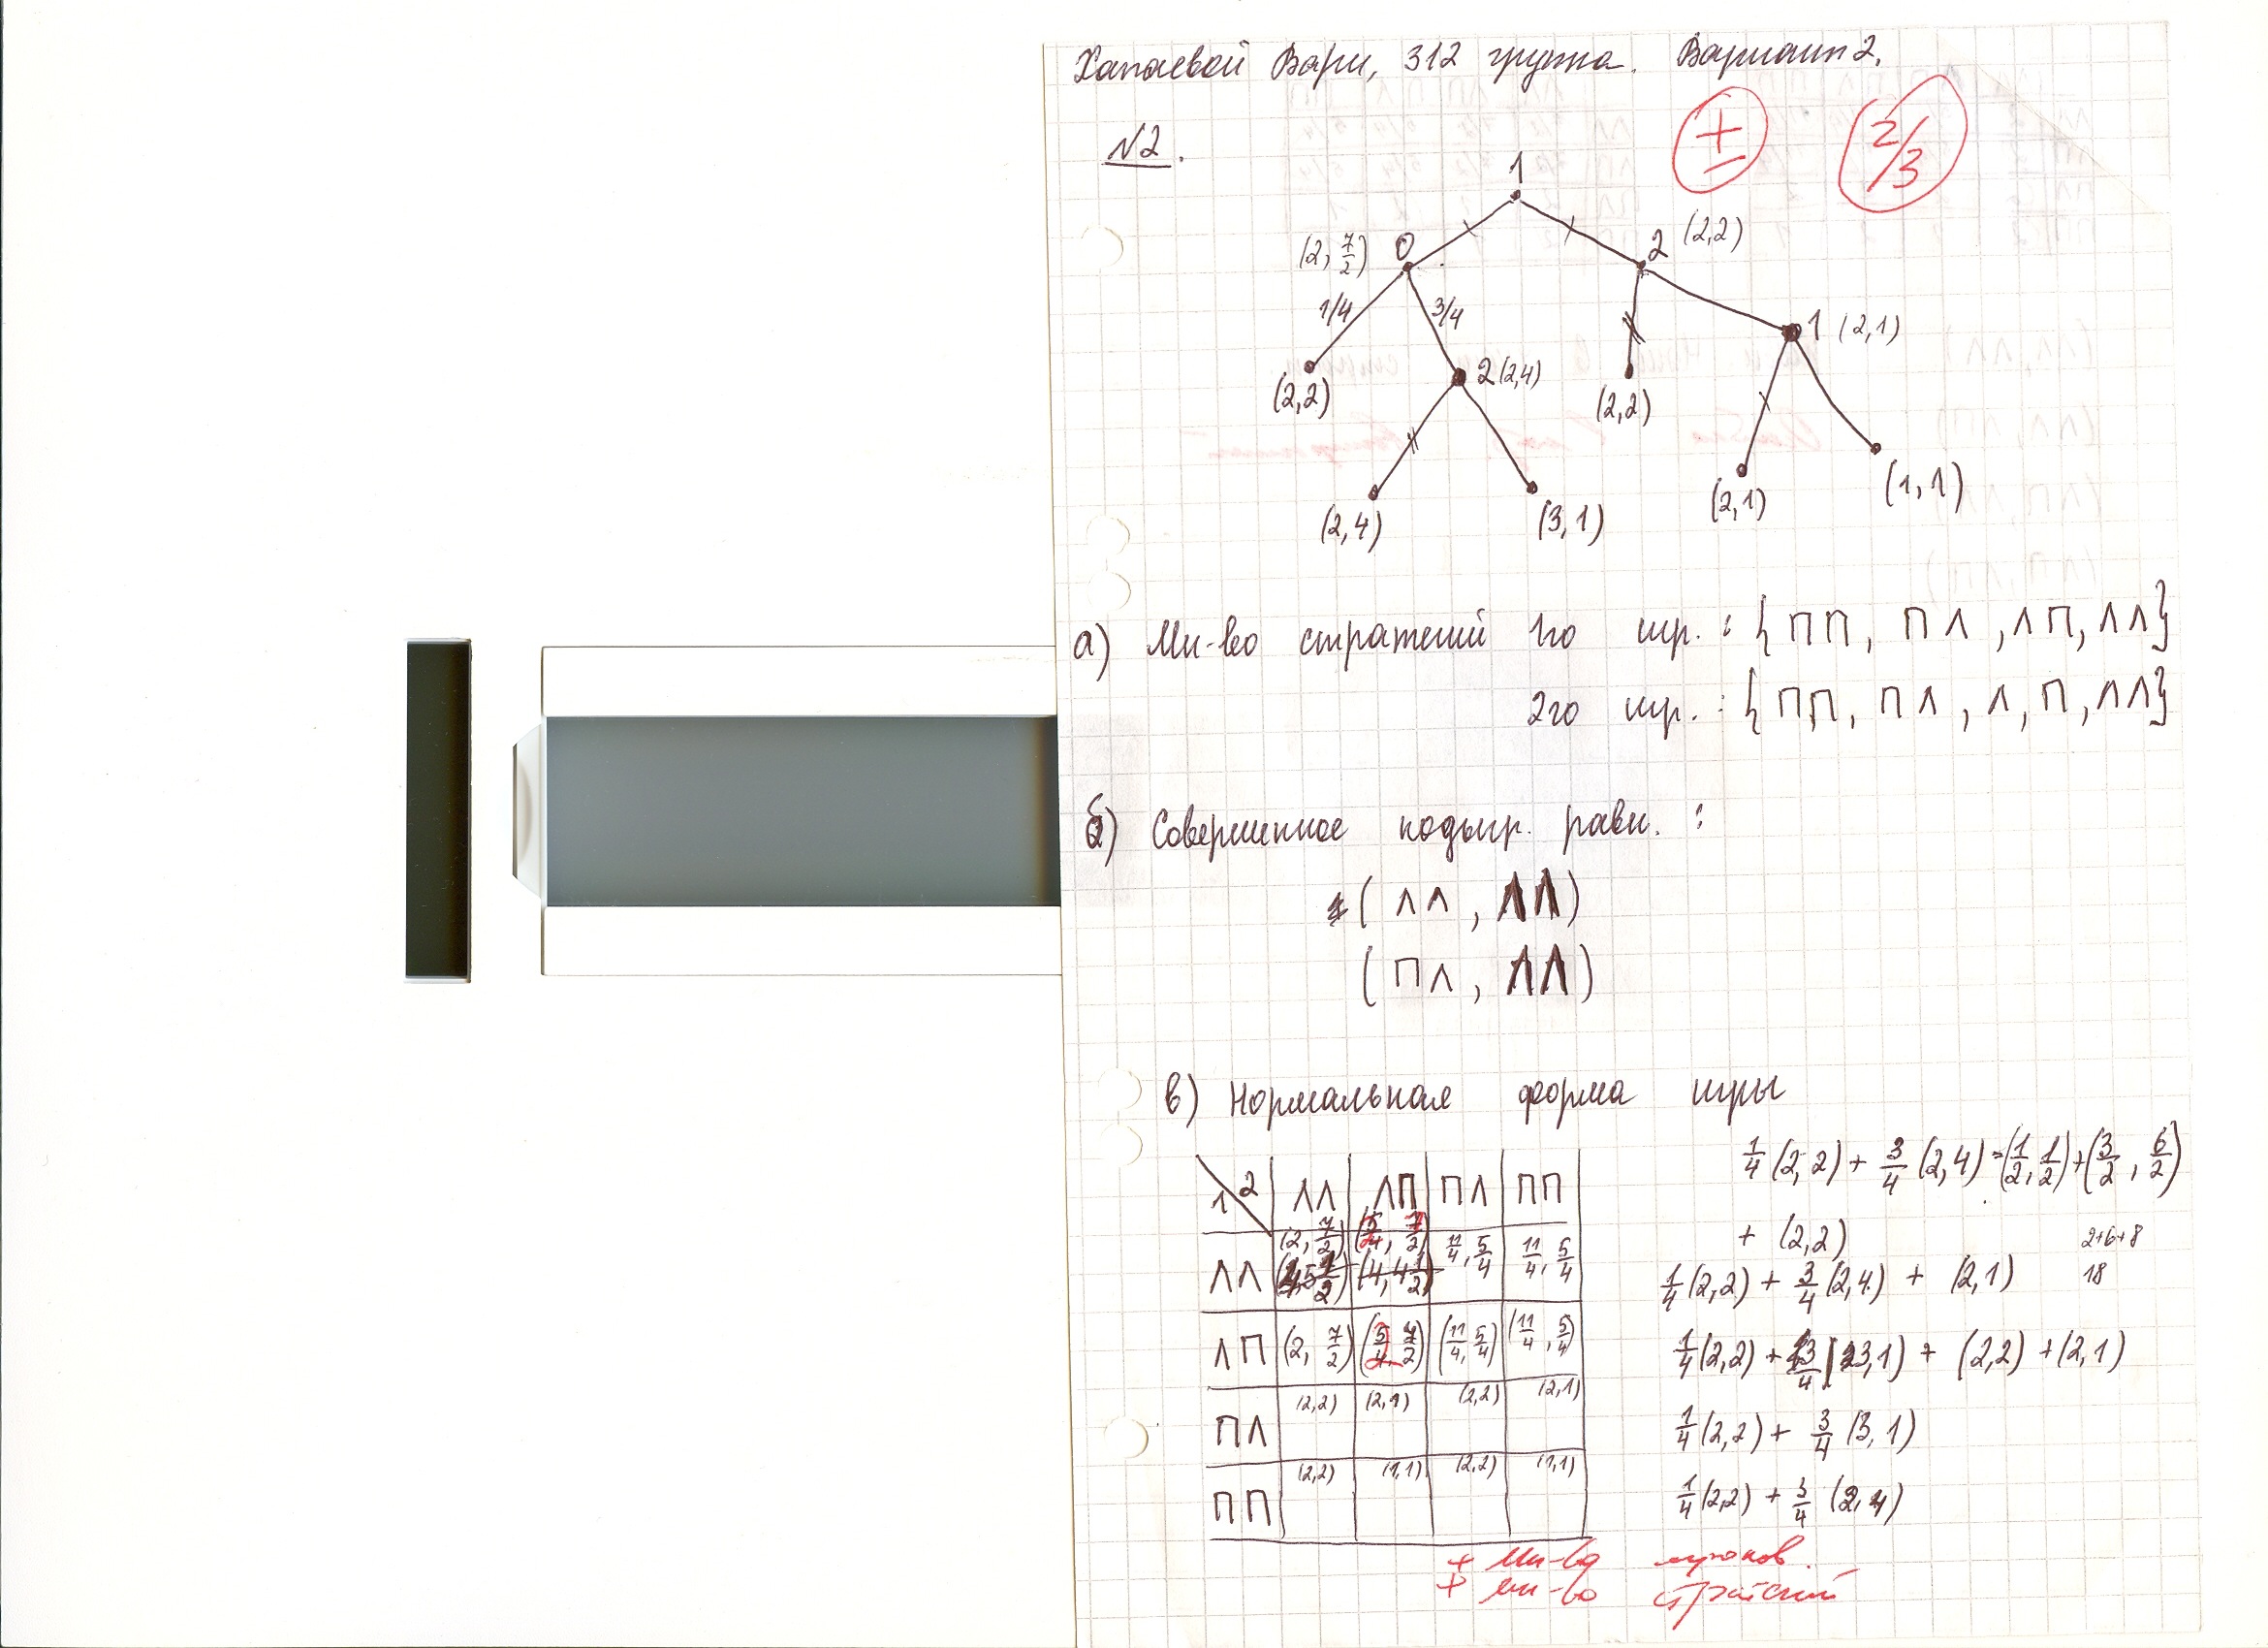 Хапаевой Вари, 312 группа. Вариант 2.
№2.
± 2/3
1
(2, 7/2) 0 2 (2,2)
1/4 3/4 1 (2,1)
(2,2) 2 (2,4) (2,2)
(2,4) (3,1) (2,1) (1,1)
а) Мн-во стратегий 1го игр. : { ПП, ПЛ, ЛП, ЛЛ}
2го игр. : { ПП, ПЛ, Л, П, ЛЛ}
б) Совершенное подыгр. равн. :
( ЛЛ, ЛЛ)
( ПЛ, ЛЛ)
в) Нормальная форма игры
1 2 ЛЛ ЛП ПЛ ПП
ЛЛ (2, 7/2) 11/4, 5/4 11/4, 5/4
ЛП (2, 7/2) (11/4, 5/4) (11/4, 5/4)
ПЛ (2,2) (2,1) (2,2) (2,1)
ПП (2,2) (1,1) (2,2) (1,1)
1/4 (2,2) + 3/4 (2,4) = (1/2, 1/2) + (3/2, 6/2)
+ (2,2) 2+6+8
1/4 (2,2) + 3/4 (2,4) + (2,1) 18
1/4 (2,2) + 3/4 (3,1) + (2,2) + (2,1)
1/4 (2,2) + 3/4 (3,1)
1/4 (2,2) + 3/4 (2,4)
+ Мн-во игроков.
+ мн-во стратегий